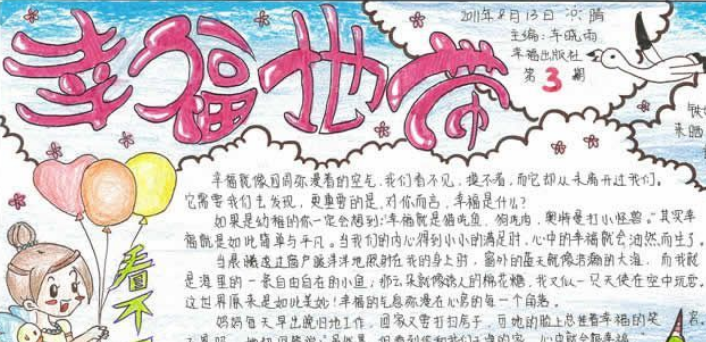 幸福地带
2011年8月13日 晴
主编:车晓雨
幸福出版社
第3期
幸福就像回周弥漫着的空气,我们看不见,摸不着,而它却从未离开过我们。
它需要我们去发现,更重要的是,对你而言,幸福是什么?
如果是幼稚的你一定会想到:"幸福就是猫吃鱼,狗吃肉,奥特曼打小怪兽。"其实幸
福就是如此简单与平凡。当我们的内心得到小小的满足时,心中的幸福就会油然而生了。
当晨曦透过窗户暖洋洋地照射在我的身上时,窗外的蓝天就像浩瀚的大海,而我就
是海里的一条自由自在的小鱼;那云朵就像诱人的棉花糖,我又似一只天使在空中玩耍。
这世界原来是如此美妙!幸福的气息弥漫在心房的每一个角落。
妈妈每天早出晚归地工作,回家又要打扫房子,可她的脸上总挂着幸福的笑容。
看不